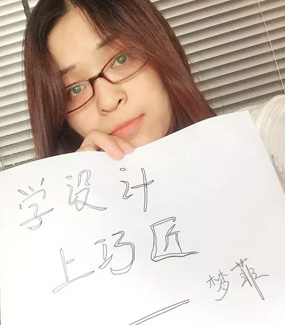 学设计
上巧匠
——梦菲